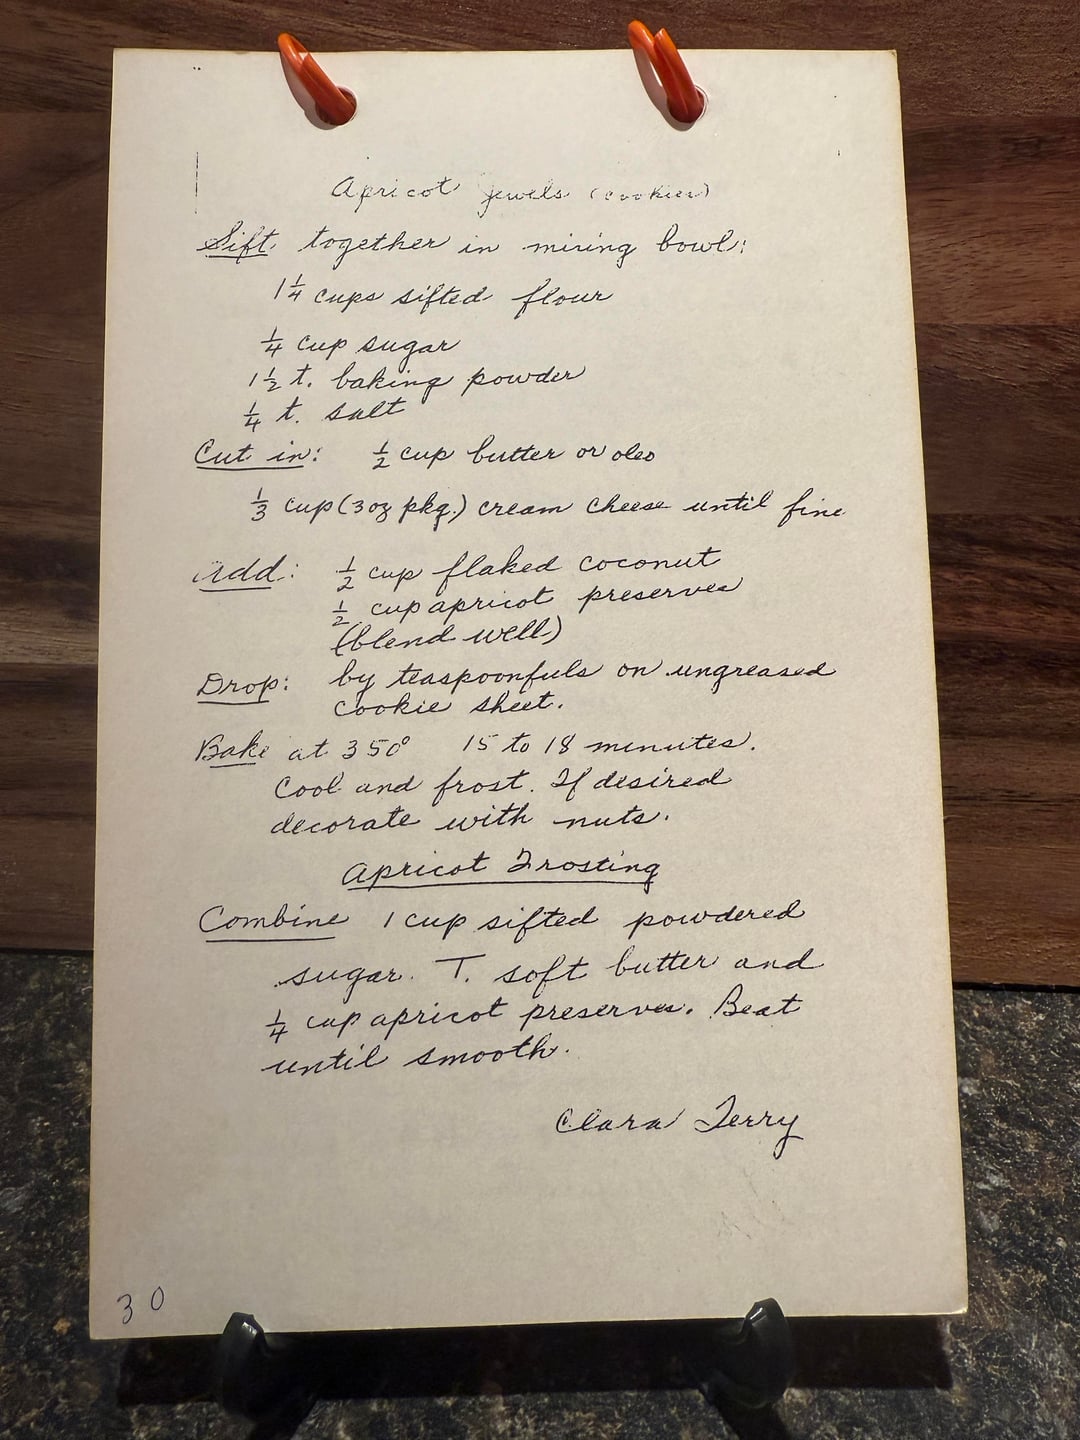 Apricot Jewels (cookies)
Sift together in mixing bowl:
1 1/4 cups sifted flour
1/4 cup sugar
1 1/2 t. baking powder
1/4 t. salt
Cut in: 1/2 cup butter or oleo
1/3 cup (3 oz pkg.) cream cheese until fine
Add: 1/2 cup flaked coconut
1/2 cup apricot preserves
(blend well)
Drop: by teaspoonfuls on ungreased
cookie sheet.
Bake at 350° 15 to 18 minutes.
Cool and frost. If desired
decorate with nuts.
Apricot Frosting
Combine 1 cup sifted powdered
sugar. T. soft butter and
1/4 cup apricot preserves. Beat
until smooth.
Clara Terry
30